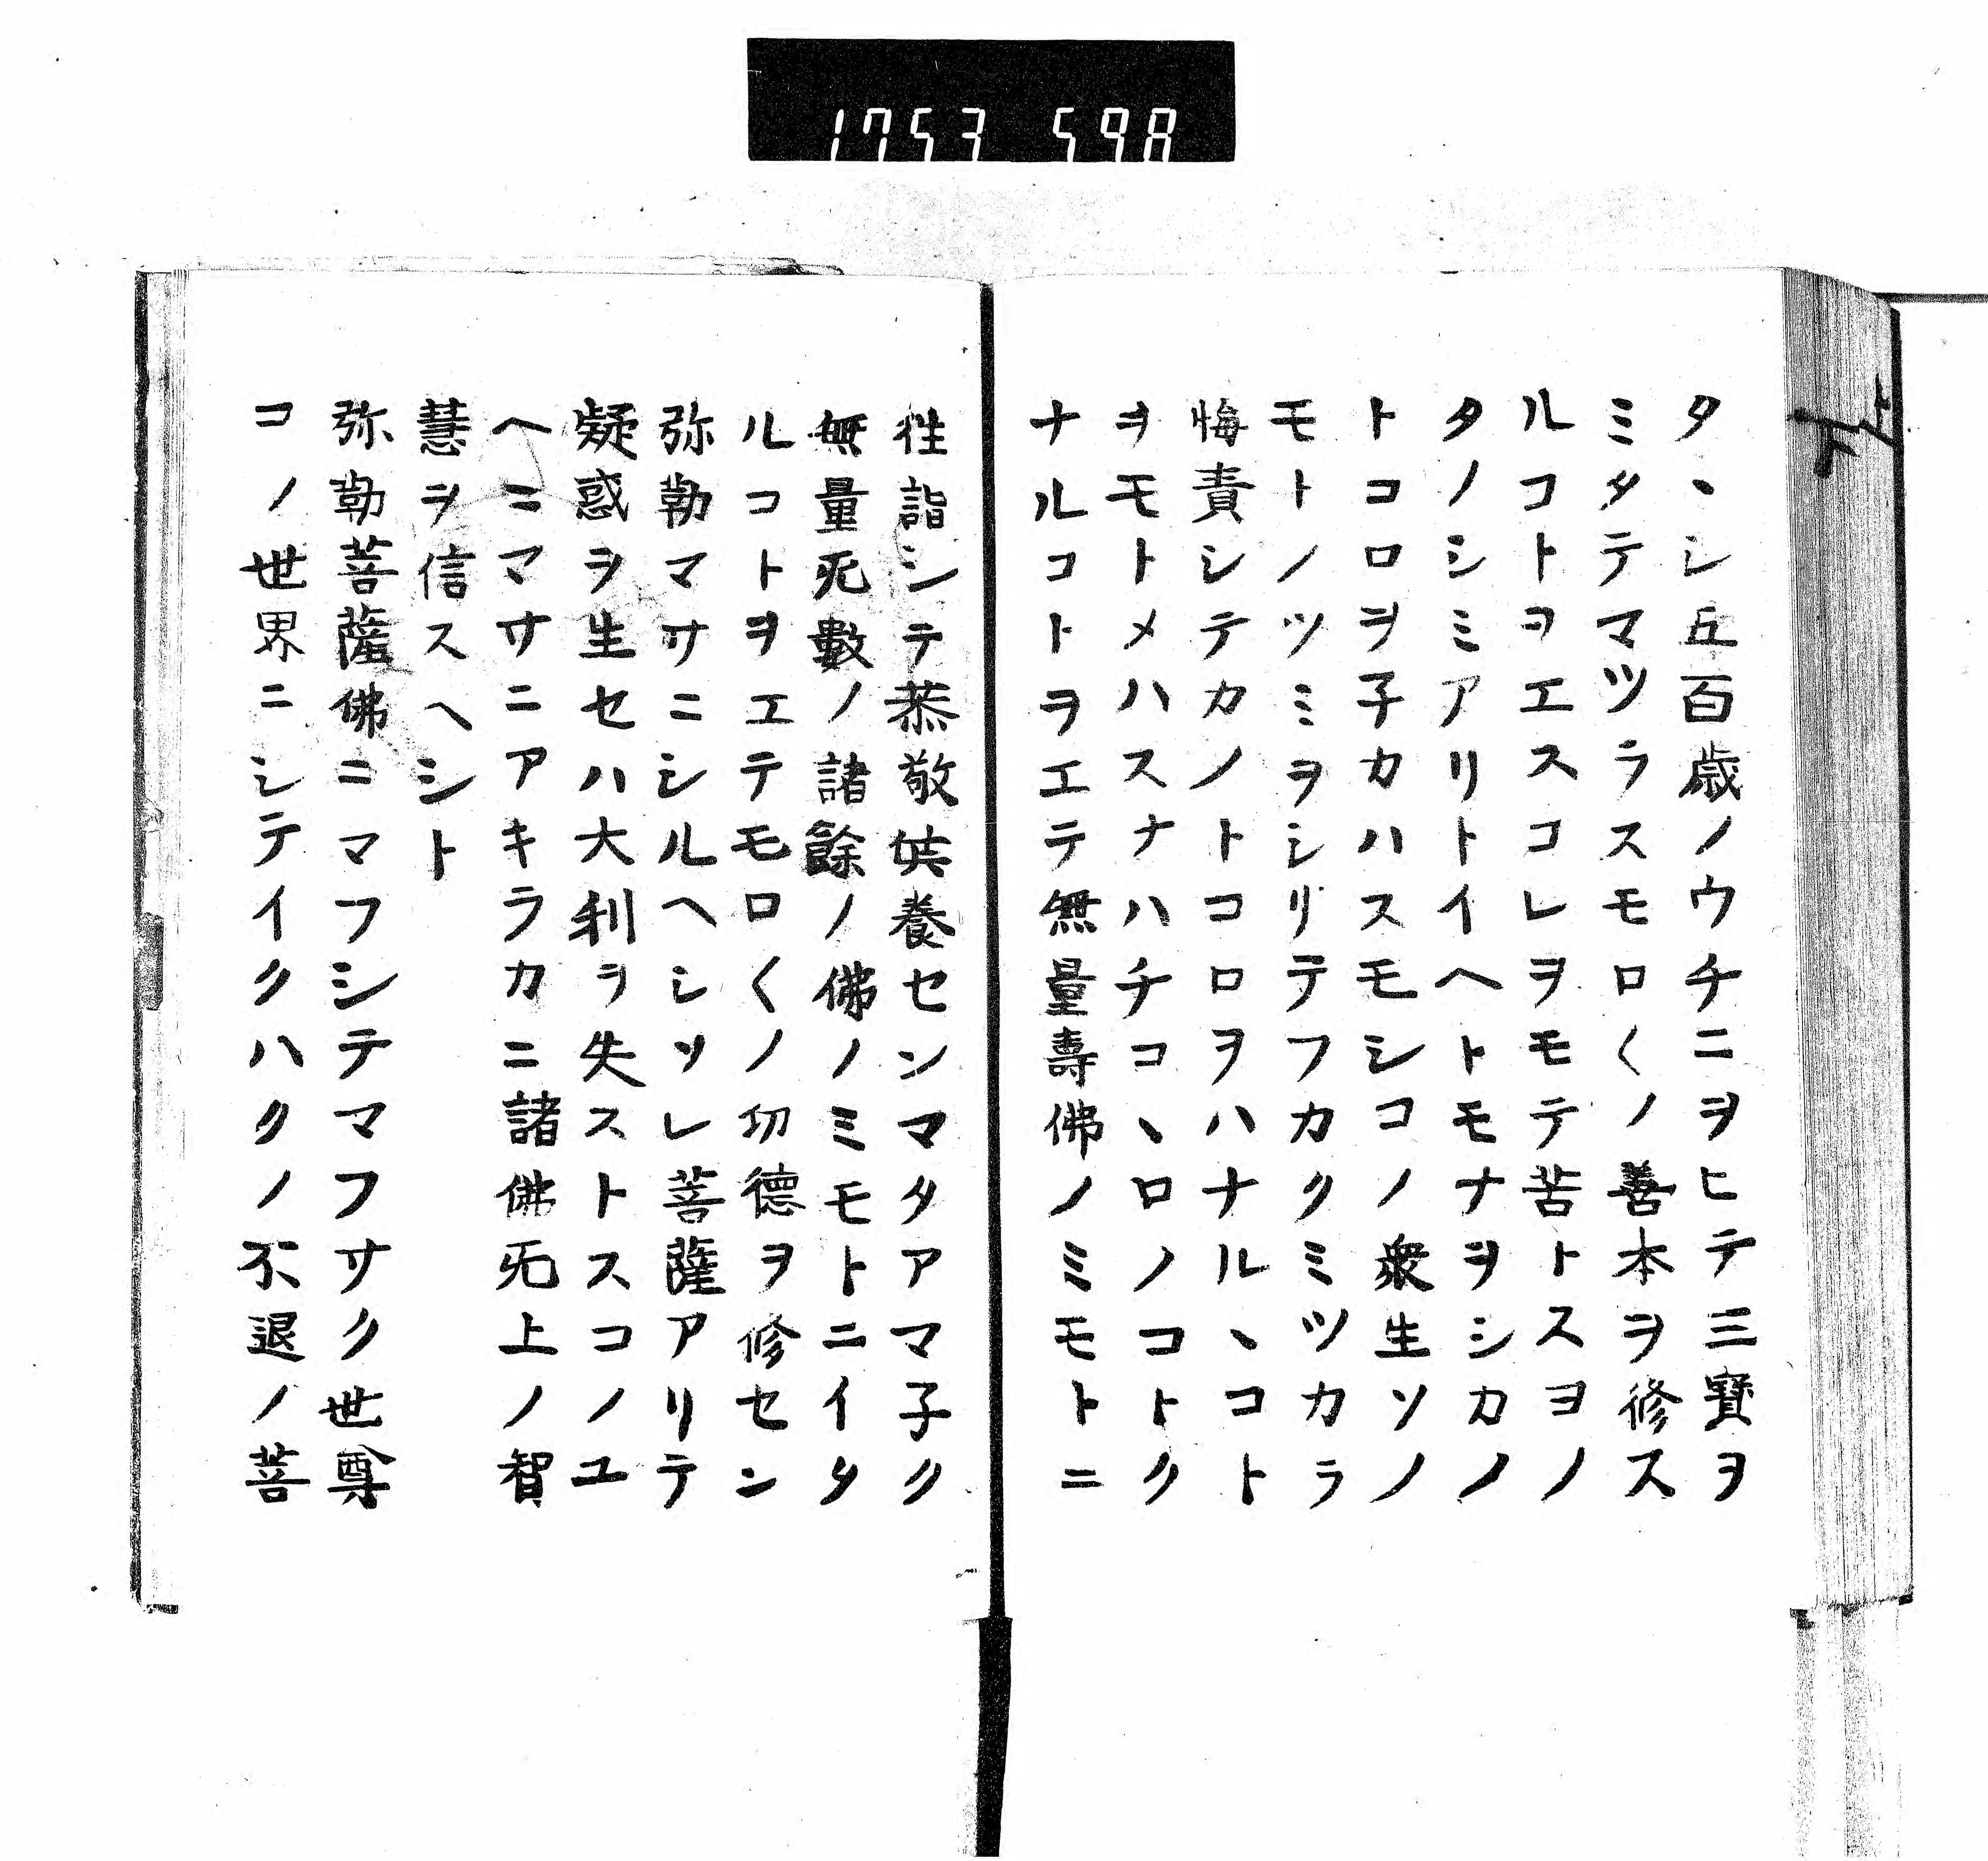 1753 598
タヽシ五百歳ノウチニヲヒテ三寳ヲ
ミタテマツラスモロ〱ノ善本ヲ修ス
ルコトヲエスコレヲモテ苦トスヨノ
タノシミアリトイヘトモナヲシカノ
トコロヲ子カハスモシコノ衆生ソノ
モトノツミヲシリテフカクミツカラ
悔責シテカノトコロヲハナルヽコト
ヲモトメハスナハチコヽロノコトク
ナルコトヲエテ無量壽佛ノミモトニ
徃詣シテ恭敬供養センマタアマ子ク
無量无數ノ諸餘ノ佛ノミモトニイタ
ルコトヲエテモロ〱ノ功德ヲ修セン
弥勒マサニシルヘシソレ菩薩アリテ
疑惑ヲ生セハ大利ヲ失ストスコノユ
ヘニマサニアキラカニ諸佛无上ノ智
慧ヲ信スヘシト
弥勒菩薩佛ニマフシテマフサク世尊
コノ世界ニシテイクハクノ不退ノ菩